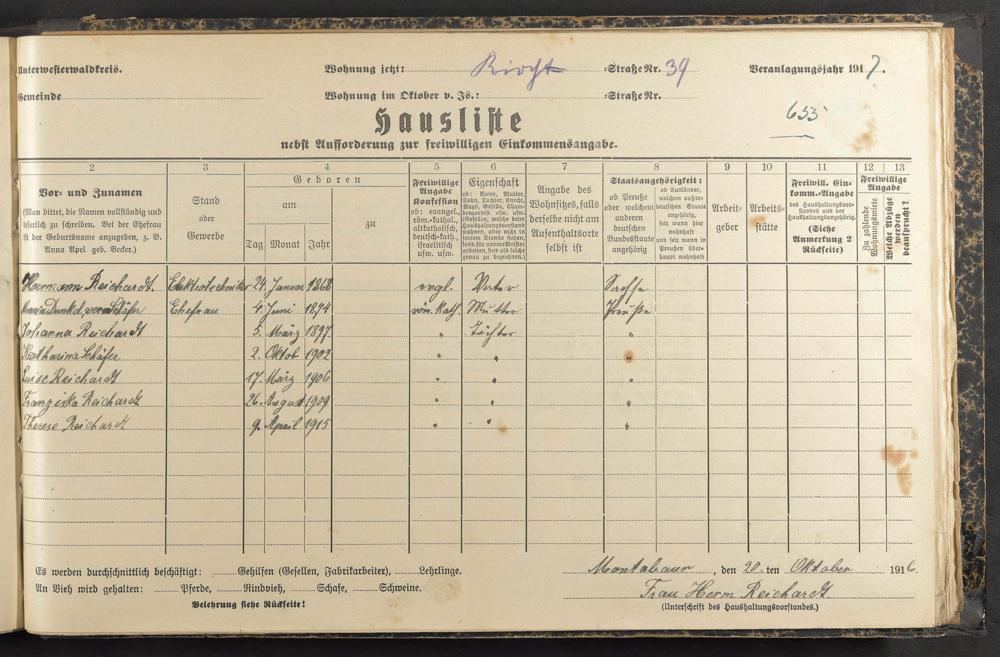 Unterwesterwaldkreis. Wohnung jetzt: Kirchst =Straße Nr. 39 Veranlagungsjahr 1917.
Gemeinde Wohnung im Oktober v. Js.: =Straße Nr.
655
Hausliste
nebst Aufforderung zur freiwilligen Einkommensangabe.
2 3 4 5 6 7 8 9 10 11 12 13
Vor- und Zunamen
(Man bittet, die Namen vollständig und
leserlich zu schreiben. Bei der Ehefrau
ist der Geburtsname anzugeben, z. B.
Anna Apel geb. Becker.)
Stand
oder
Gewerbe
Geboren
am
zu
Tag Monat Jahr
Freiwillige
Angabe
Konfession
ob: evangel.,
röm.-kathol.,
altkatholisch,
deutsch-kath.,
israelitisch
usw. usw.
Eigenschaft
ob: Vater, Mutter,
Sohn, Tochter, Knecht,
Magd, Geselle, Cham-
bregarnist usw. usw.
(Gesellen, welche beim
Haushaltungsvorstand
wohnen, aber nicht in
seinem Dienste stehen,
sond. für andere Meister
arbeiten, sind als solche
genau zu bezeichnen).
Angabe des
Wohnsitzes, falls
derselbe nicht am
Aufenthaltsorte
selbst ist
Staatsangehörigkeit:
ob Preuße
oder welchem
anderen
deutschen
Bundesstaate
angehörig
ob Ausländer,
welchem außer-
deutschen Staate
angehörig,
seit wann hier
wohnhaft
und seit wann in
Preußen über-
haupt wohnhaft
Arbeit-
geber
Arbeits-
stätte
Freiwill. Ein-
komm.-Angabe
des Haushaltungsvor-
standes und der
Haushaltungsangehörig.
(Siehe
Anmerkung 2
Rückseite)
Freiwillige
Angabe
Zu zahlende
Wohnungsmiete
Welche Abzüge
werden
beansprucht?
Hermann Reichardt. Elektrotechniker 24. Januar 1868 evgl. Vater Sachse
Maria Dunkel, geb. Schäfer Ehefrau 4. Juni 1874 röm. Kath. Mutter Preuße
Johanna Reichardt 5. März 1897 " Töchter "
Katharina Schäfer 2. Oktob. 1902 " " "
Luise Reichardt 17. März 1906 " " "
Franziska Reichardt 26. August 1909 " " "
Therese Reichardt 9. April 1915 " " "
Es werden durchschnittlich beschäftigt: Gehilfen (Gesellen, Fabrikarbeiter), Lehrlinge.
An Vieh wird gehalten: Pferde, Rindvieh, Schafe, Schweine.
Belehrung siehe Rückseite!
Montabaur, den 20. ten Oktober 1916.
Frau Herm Reichardt
(Unterschrift des Haushaltungsvorstandes.)